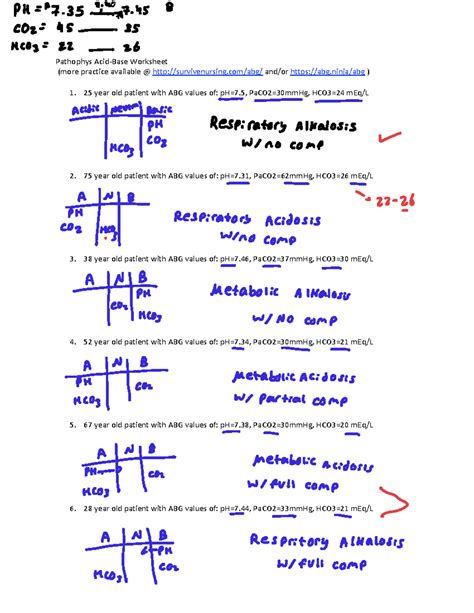 PH = 7.35 7.40 7.45 B
CO2 = 45 35
HCO3 = 22 26
Pathophys Acid-Base Worksheet
(more practice available @ http://survivenursing.com/abg/ and/or https://abg.ninja/abg )
1. 25 year old patient with ABG values of: pH=7.5, PaCO2=30mmHg, HCO3=24 mEq/L
Acidic Basic
PH
CO2
HCO3
Respiratory Alkalosis
w/no comp
2. 75 year old patient with ABG values of: pH=7.31, PaCO2=62mmHg, HCO3=26 mEq/L
22-26
A N B
PH
CO2 HCO3
Respiratory Acidosis
w/no comp
3. 38 year old patient with ABG values of: pH=7.46, PaCO2=37mmHg, HCO3=30 mEq/L
A N B
PH
CO2
HCO3
Metabolic Alkalosis
w/ No comp
4. 52 year old patient with ABG values of: pH=7.34, PaCO2=30mmHg, HCO3=21 mEq/L
A N B
PH
CO2
HCO3
Metabolic Acidosis
w/ Partial comp
5. 67 year old patient with ABG values of: pH=7.38, PaCO2=30mmHg, HCO3=20 mEq/L
A N B
PH
CO2
HCO3
Metabolic Acidosis
w/ full comp
6. 28 year old patient with ABG values of: pH=7.44, PaCO2=33mmHg, HCO3=21 mEq/L
A N B
PH
CO2
HCO3
Respiritory Alkalosis
w/ full comp